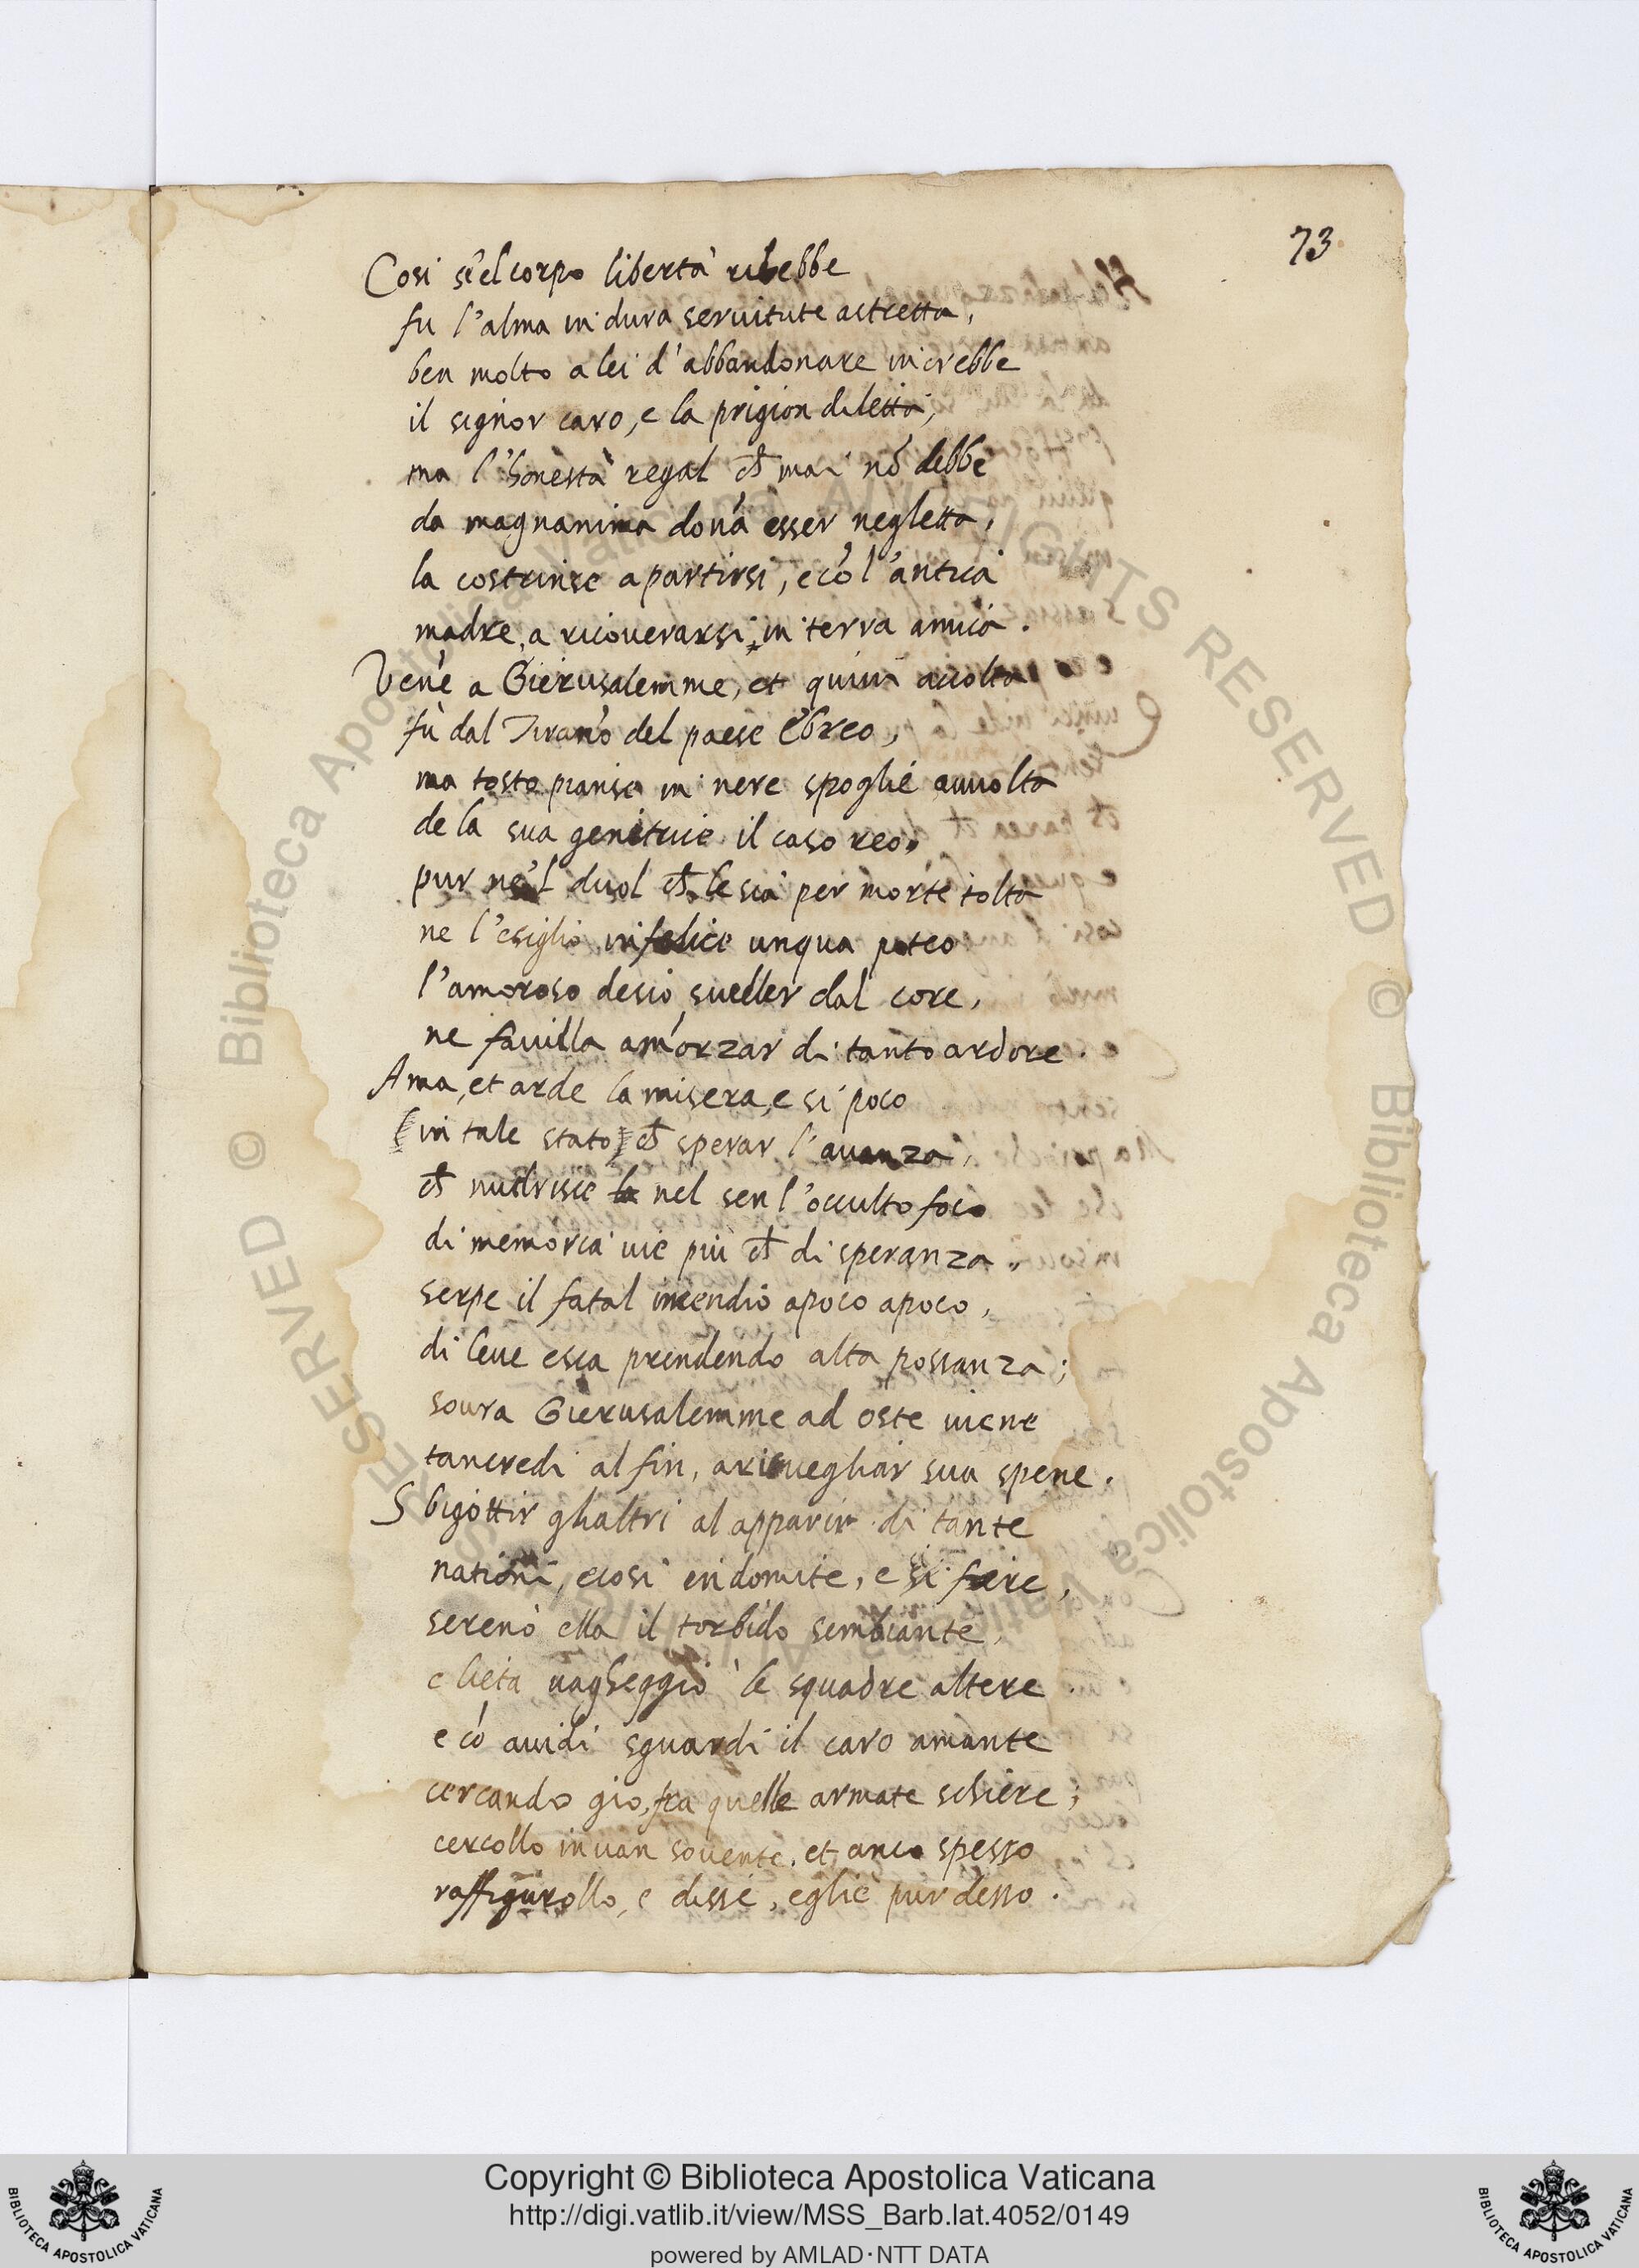 73
Cosi se'l corpo libertà riebbe
fu l'alma in dura seruitute astretta,
ben molto a lei d'abbandonare increbbe
il signor caro, e la prigion diletta;
ma l'honestà regal ch mai nõ debbe
da magnanima dõna esser negletta,
la costrinse a partirsi, e cõ l'antica
madre, a ricouerarsi in terra amica.
Vẽne a Gierusalemme, et quiui accolta
fù dal Tirãno del paese Ebreo,
ma tosto pianse in nere spoglie auuolta
de la sua genitrice il caso reo,
pur ne'l duol ch le sia per morte tolta
ne l'esiglio infelice unqua poteo
l'amoroso desio sueller dal core,
ne fauilla amorzar di tanto ardore.
Ama, et arde la misera, e si poco
in tale stato ch sperar l'auanza,
ch nudrisce nel sen l'occulto foco
di memoria uie più ch di speranza.
serpe il fatal incendio apoco apoco,
di leue esca prendendo alta possanza;
soura Gierusalemme ad oste uiene
tancredi al fin, a risuegliar sua spene.
Sbigottir glialtri al apparir di tante
nationi, e cosi indomite, e si fiere,
serenò ella il torbido sembiante,
e lieta uagheggiò le squadre altere
e cõ auidi sguardi il caro amante
cercando gio, fra quelle armate schiere;
cercollo in uan souente, et anco spesso
raffigurollo, e disse, egli è pur desso.
© Biblioteca Apostolica Vaticana ALL RIGHTS RESERVED © Biblioteca Apostolica Vaticana ALL RIGHTS RESERVED
Copyright © Biblioteca Apostolica Vaticana
http://digi.vatlib.it/view/MSS_Barb.lat.4052/0149
powered by AMLAD·NTT DATA
BIBLIOTECA APOSTOLICA VATICANA
BIBLIOTECA APOSTOLICA VATICANA